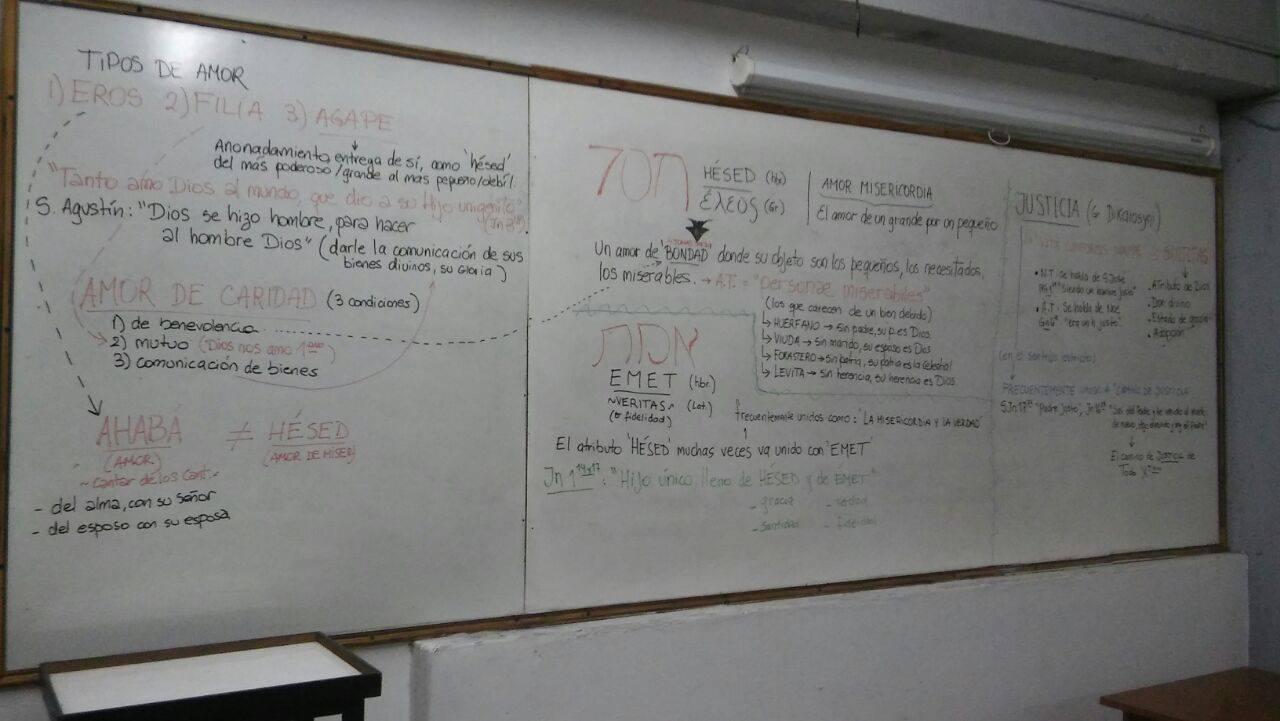 TIPOS DE AMOR
1) EROS 2) FILIA 3) AGAPE
Anonadamiento, entrega de sí, como 'hésed'
del más poderoso/grande al mas pequeño/debil.
"Tanto amo Dios al mundo, que dio a su Hijo unigenito"
S. Agustín: "Dios se hizo hombre, para hacer
al hombre Dios" (darle la comunicación de sus
bienes divinos, su Gloria)
AMOR DE CARIDAD (3 condiciones)
1) de benevolencia
2) mutuo (Dios nos amo 1
3) comunicación de bienes
AHABÁ ≠ HÉSED
(AMOR) (AMOR DE MISED)
~ cantar de los Cant. ~
- del alma, con su Señor
- del esposo con su esposa
חסד HÉSED (hbr.)
έλεος (Gr)
AMOR MISERICORDIA
El amor de un grande por un pequeño
Un amor de 'BONDAD' donde su objeto son los pequeños, los necesitados,
los miserables. → A.T. = "personae miserabiles"
(los que carecen de un bien debido)
↳ HUERFANO → sin padre, su p. es Dios
↳ VIUDA → sin marido, su esposo es Dios
↳ FORASTERO → sin patria, su patria es la celestial
↳ LEVITA → sin herencia, su herencia es Dios
אמת
EMET (hbr.)
~VERITAS~ (Lat.)
(o fidelidad)
frecuentemente unidos como: 'LA MISERICORDIA Y LA VERDAD'
El atributo 'HÉSED' muchas veces va unido con 'EMET'
Jn 1 14 y 17: "Hijo único, lleno de HÉSED y de ÉMET"
- gracia - verdad
- santidad - fidelidad
JUSTICIA (Gr.
• N.T. se habla de S. José
"siendo un hombre justo"
• A.T. Se habla de Noé
"era un h. justo"
• Atributo de Dios
• Don divino
• Estado de gracia
• Adopción
(en el sentido estricto)
FRECUENTEMENTE UNIDO A "CAMINO DE JUSTICIA"
S. Jn 17 "Padre Justo", Jn 16
El camino de JUSTICIA de
Todo